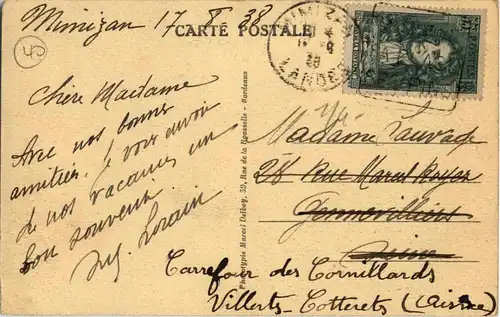 Mimizan 17 8 38
CARTE POSTALE
MIMIZAN
LANDES
5
Chère Madame
Avec nos bonnes
amitiés. Je vous envoie
de nos vacances un
bon souvenir
Lorain
Phototypie Marcel Delboy, 39, Rue de la Rousselle - Bordeaux
Madame Sauvage
28 Rue Marcel Royer
Gennevilliers
Seine
Carrefour des Cornillards
Villerts-Cotterets (Aisne)